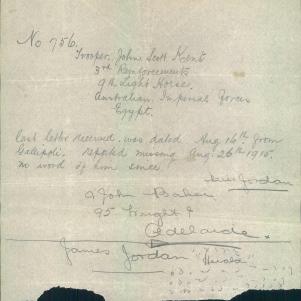 No 756.
Trooper John Scott Kent
3rd Reinforcements
9th Light Horse,
Australian Imperial Forces
Egypt.
Last letter received was dated Aug 16th from
Gallipoli. reported missing Aug. 26th 1915.
no word of him since
Jordan
John Baker
95 Wright St
Adelaide.
James Jordan